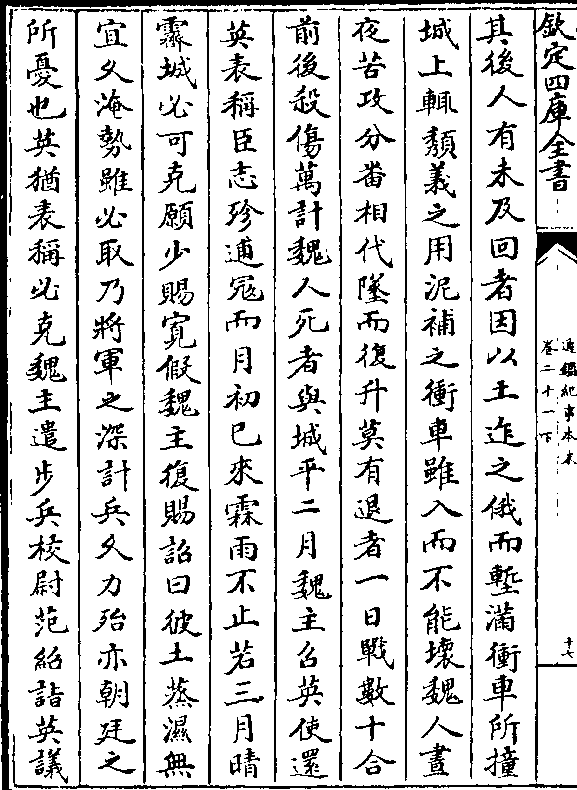 欽定四庫全書
通鑑紀事本末
卷二十一下
十七
其後人有未及回者因以土迮之俄而塹滿衝車所撞
城上輒頽義之用泥補之衝車雖入而不能壞魏人晝
夜苦攻分畨相代墜而復升莫有退者一日戰數十合
前後殺傷萬計魏人死者與城平二月魏主召英使還
英表稱臣志殄逋冦而月初已來霖雨不止若三月晴
霽城必可克願少賜寛假魏主復賜詔曰彼土蒸濕無
宜乆淹勢雖必取乃將軍之深計兵乆力殆亦朝廷之
所憂也英猶表稱必克魏主遣步兵校尉范紹詣英議